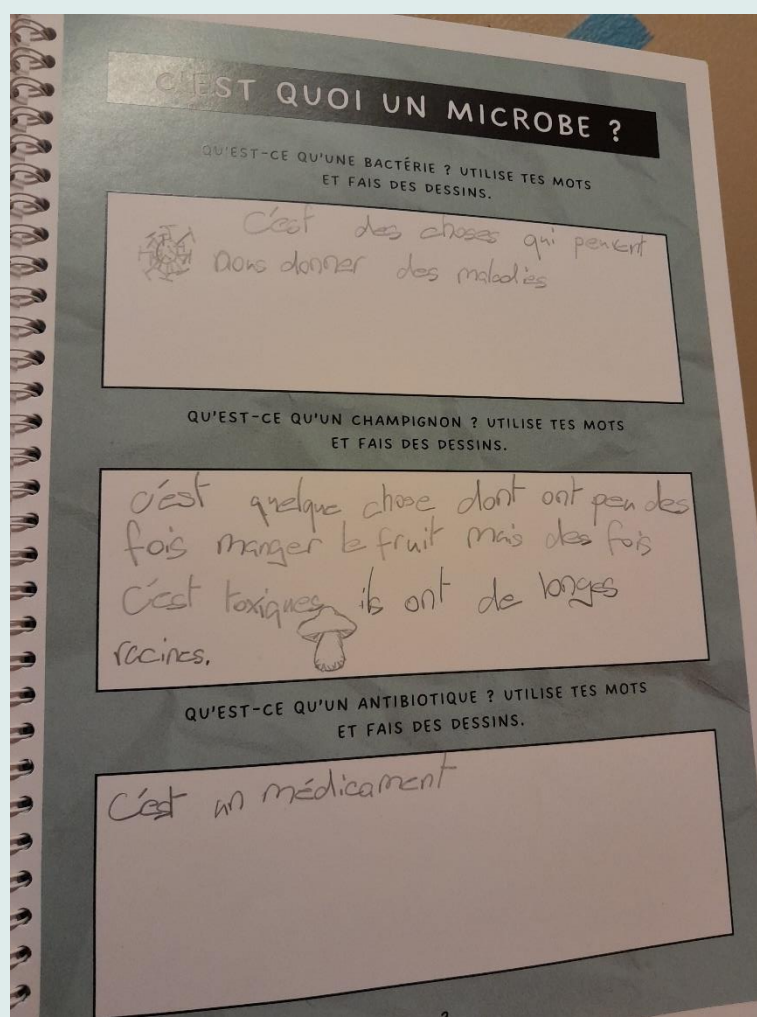 C'EST QUOI UN MICROBE ?
QU'EST-CE QU'UNE BACTÉRIE ? UTILISE TES MOTS
ET FAIS DES DESSINS.
C'est des choses qui peuvent
nous donner des maladies
QU'EST-CE QU'UN CHAMPIGNON ? UTILISE TES MOTS
ET FAIS DES DESSINS.
c'est quelque chose dont ont peu des
fois manger le fruit mais des fois
C'est toxiques ils ont de longes
racines.
QU'EST-CE QU'UN ANTIBIOTIQUE ? UTILISE TES MOTS
ET FAIS DES DESSINS.
C'est un médicament